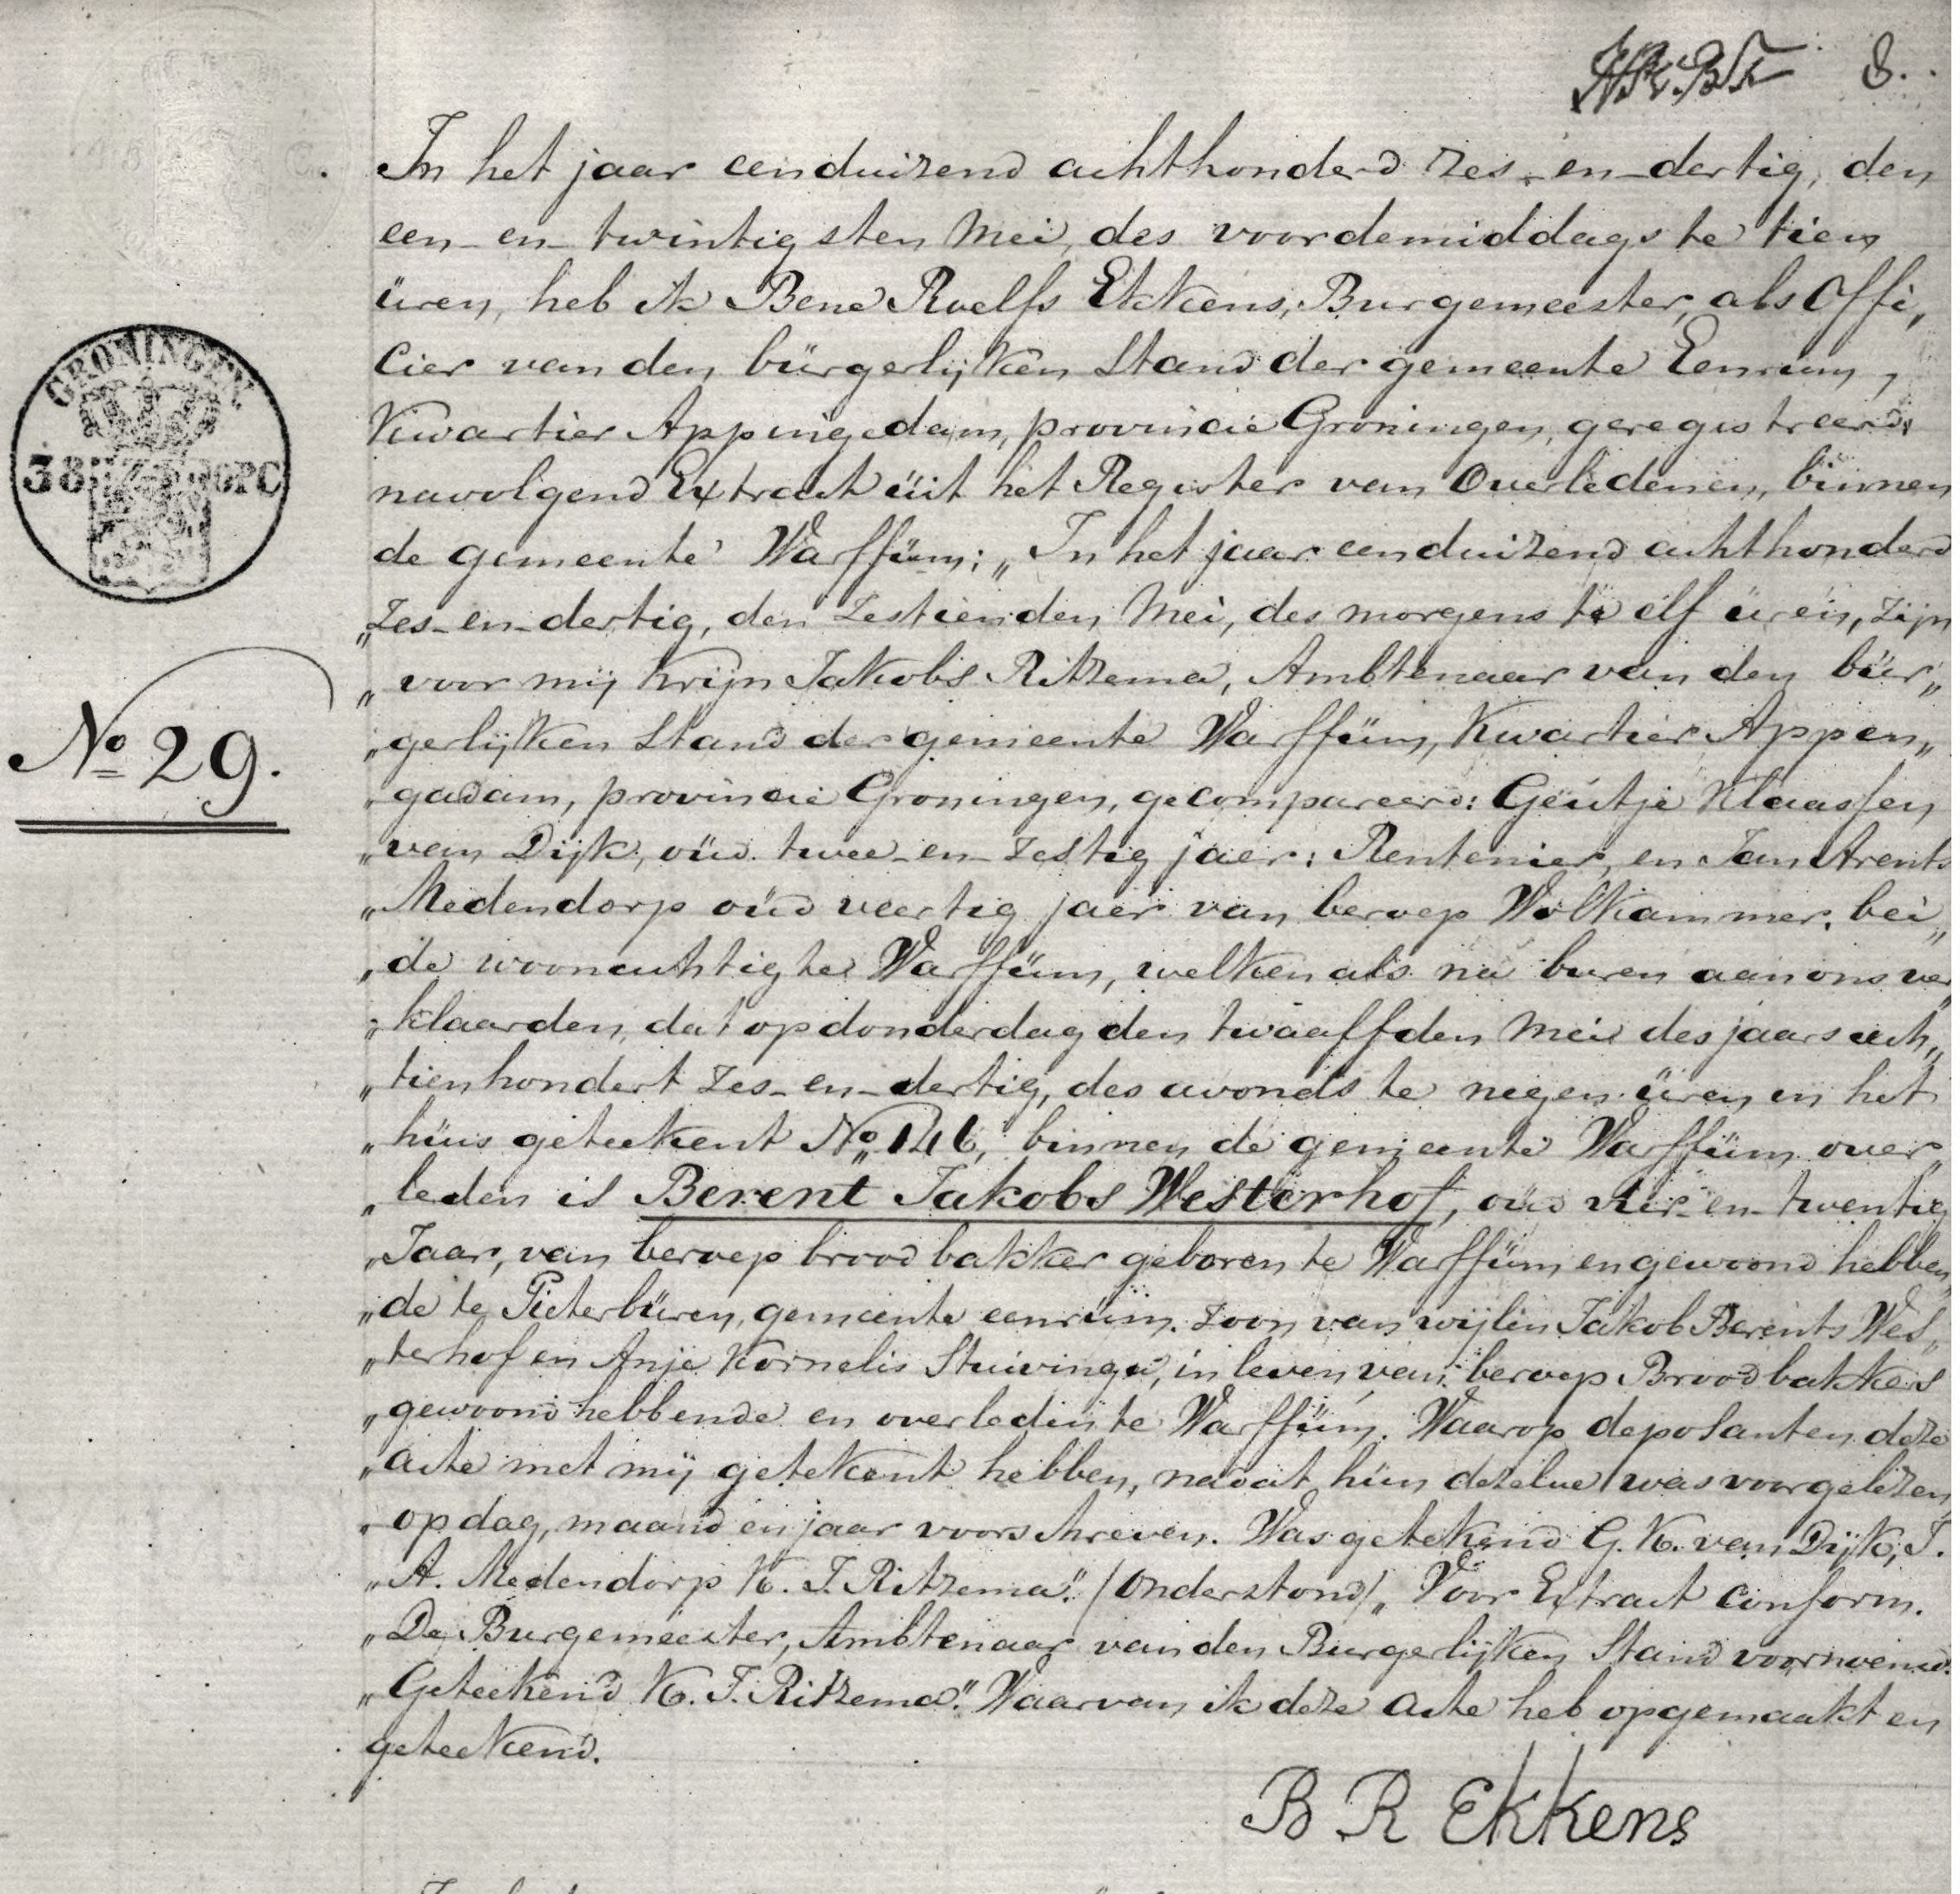 8.
In het jaar eenduizend achthonderd zes-en-dertig, den
een-en-twintigsten Mei, des voordemiddags te tien
üren, heb ik Bene Roelfs Ekkens, Burgemeester, als Offi„
cier van den bürgerlijken Stand der gemeente Eenrum,
Kwartier Appingedam, provincie Groningen, geregistreerd:
GRONINGEN.
38
OPC
navolgend Extract üit het Register van Overledenen, binnen
de gemeente Warffüm; „In het jaar eenduizend achthonderd
„zes-en-dertig, den zestienden Mei, des morgens te elf üren, zijn
„voor mij Krijn Jakobs Ritzema, Ambtenaar van den bür„
No 29.
„gerlijken Stand der gemeente Warffüm, Kwartier Appen„
„gadam, provincie Groningen, gecompareerd: Geütje Klaassen
„van Dijk, oüd twee-en-zestig jaer: Rentenier, en Jan Arents
„Medendorp oüd veertig jaer van beroep Wolkammer, bei„
„de woonachtig te Warffüm, welken als na buren aan ons ver„
„klaarden, dat op donderdag den twaaffden Mei des jaars ach„
„tienhondert zes-en-dertig, des avonds te negen üren in het
„hüis geteekent No 146, binnen de gemeente Warffüm over„
„leden is Berent Jakobs Westerhof, oüd vier-en-twentig
„Jaar, van beroep brood bakker geboren te Warffüm en gewoond hebben„
„de te Pieterbüren, gemeente eenrüm. zoon van wijlen Jakob Berents Wes„
„terhof en Anje Kornelis Stuivinga, in leven van beroep Brood bakkers
„gewoond hebbende en overleden te Warffüm. Waarop deposanten deze
„acte met mij getekent hebben, nadat hün dezelve was voorgelezen
„op dag, maand en jaar voorschreven. Was getekend G. K. van Dijk, J.
„A. Medendorp K. J. Ritzema." (Onderstond) „Voor Extract conform.
„De Burgemeester, Ambtenaar van den Burgerlijken Stand voornoemd.
„Geteekend K. J. Ritzema." Waarvan ik deze acte heb opgemaakt en
geteekend.
B R Ekkens